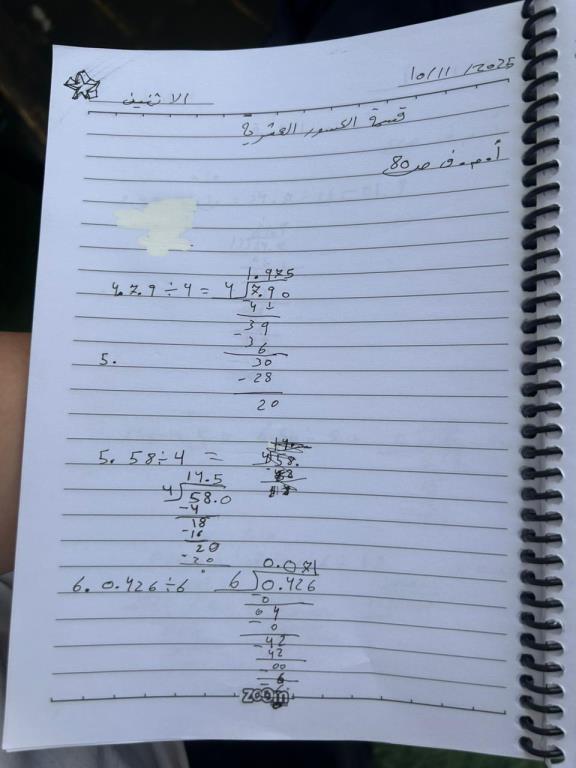 الاثنين 10/11/2025
قسمة الكسور العشرية
ص 80
1.975
4. 7.9 ÷ 4 = 4 7.90
4
39
- 36
30
5.
- 28
20
5. 58 ÷ 4 =
14.5
4 58.0
- 4
18
- 16
20
- 20
0.071
6. 0.426 ÷ 6 6 0.426
- 0
04
- 0
42
- 42
00
- 6
zoom